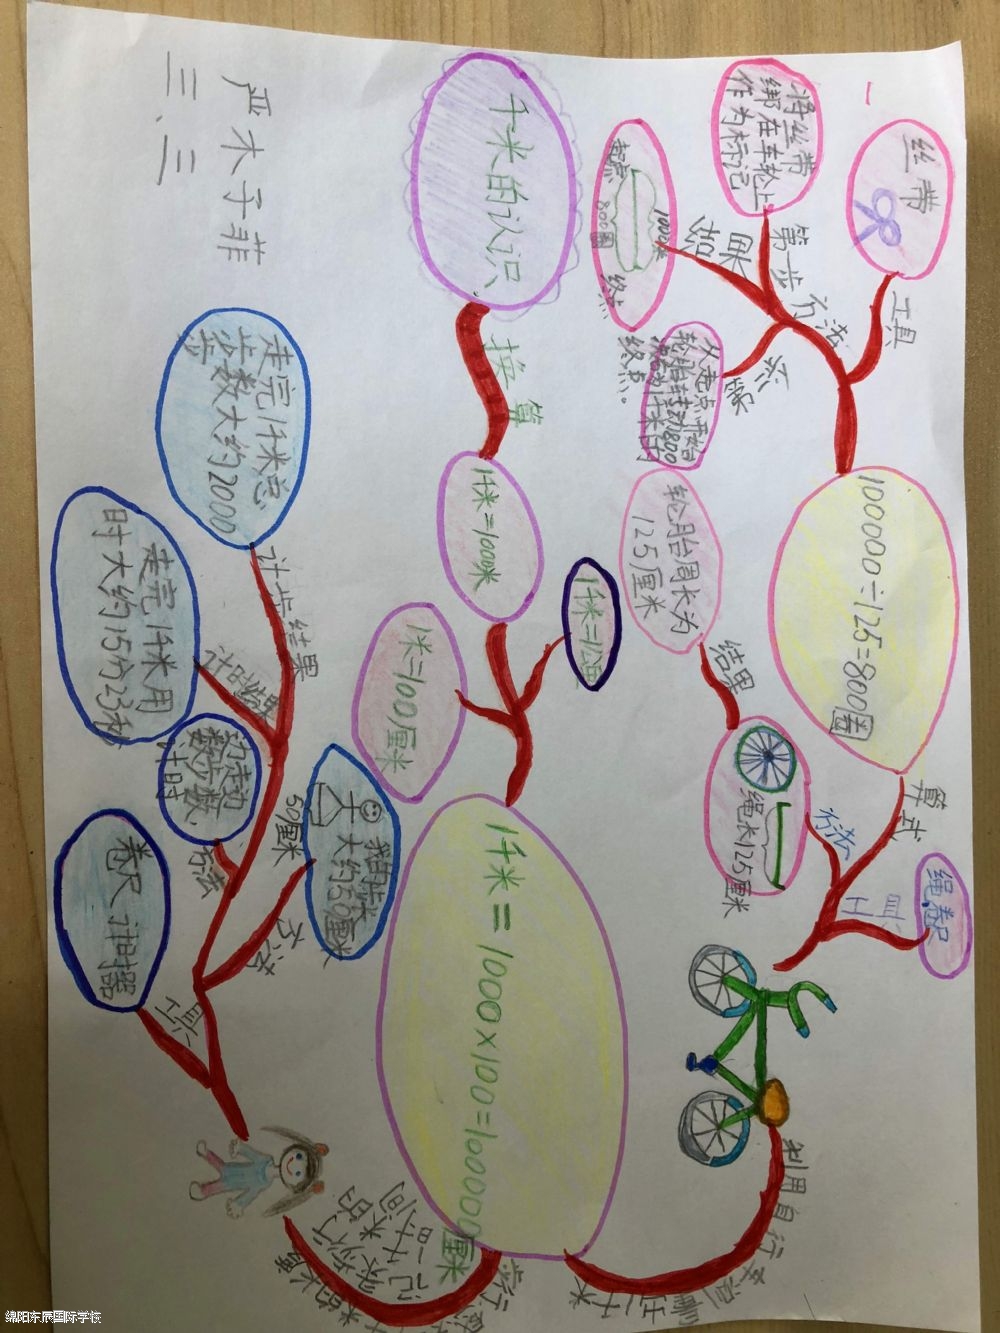 严木子菲
三.三
千米的认识
换算
1千米=1000米
1千米=1公里
1米=100厘米
1千米=1000×100=100000厘米
利用自行车
工具
绳、卷尺
方法
绳长125厘米
结果
轮胎周长为
125厘米
算式
100000÷125=800圈
工具
丝带
方法
第一步
将丝带
绑在车轮上
作为标记
轮胎转动800
终点。
结果
起点
1000米
800圈
终点
工具
卷尺 计时器
方法
大约50厘米
50厘米
方法
边走边
数步数
计时
计时结果
走完1千米用
时大约15分23秒
计步结果
走完1千米总
步数大约2000
步
绵阳东辰国际学校